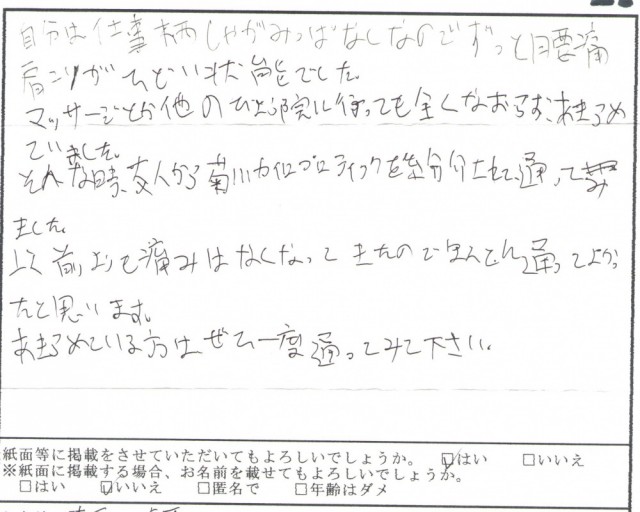 自分は仕事柄しゃがみっぱなしなのでずっと腰痛
肩こりがひどい状態でした。
マッサージとか他の ひ に行っても全くなおらず、あきらめ
ていました。
そんな時、友人から菊川カイロプロティックを 介されて、通って み
ました。
以前よりも痛みはなくなってきたので ほんとに通ってよかっ
たと思います。
あきらめている方は、ぜひ一度通ってみて下さい。
紙面等に掲載をさせていただいてもよろしいでしょうか。 ☑はい □いいえ
※紙面に掲載する場合、お名前を載せてもよろしいでしょうか。
□はい ☑いいえ □匿名で □年齢はダメ